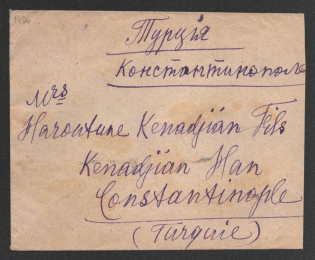 Турція
Константинополь
Mrs
Haroutune Kenadjian Fils
Kenadjian Han
Constantinople
(Turquie)